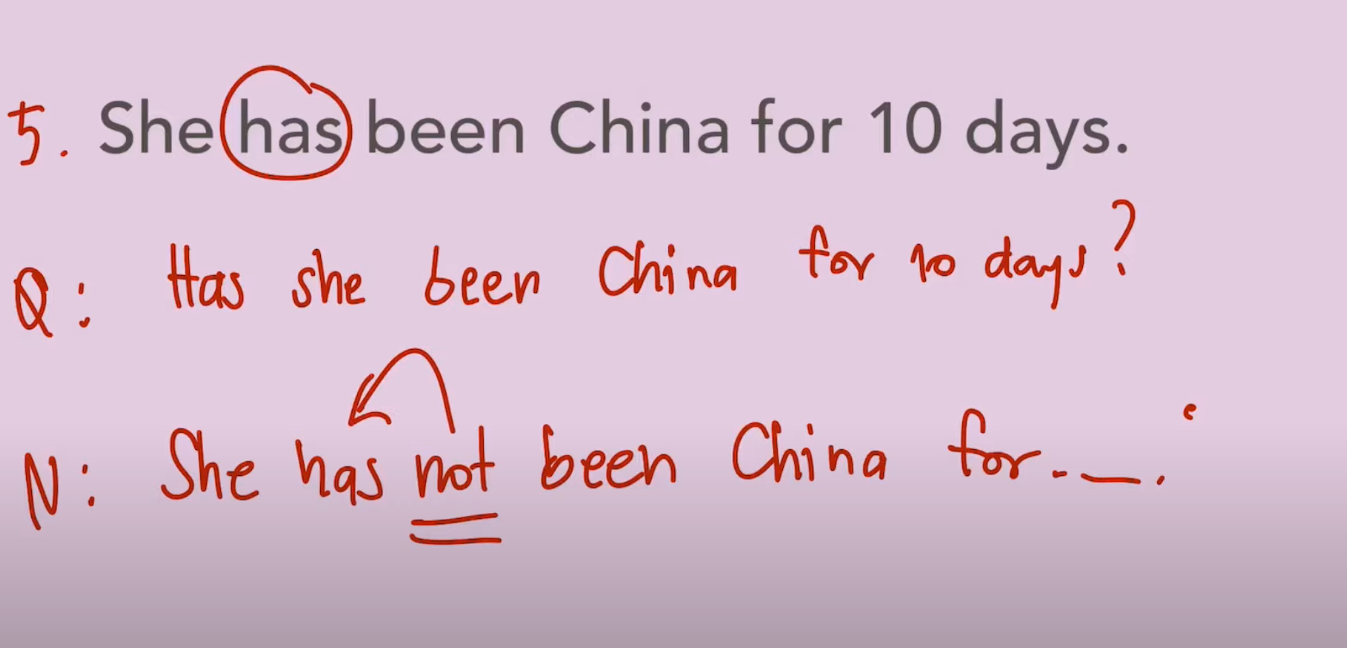 5. She has been China for 10 days.
Q: Has she been China for 10 days?
N: She has not been China for.._.